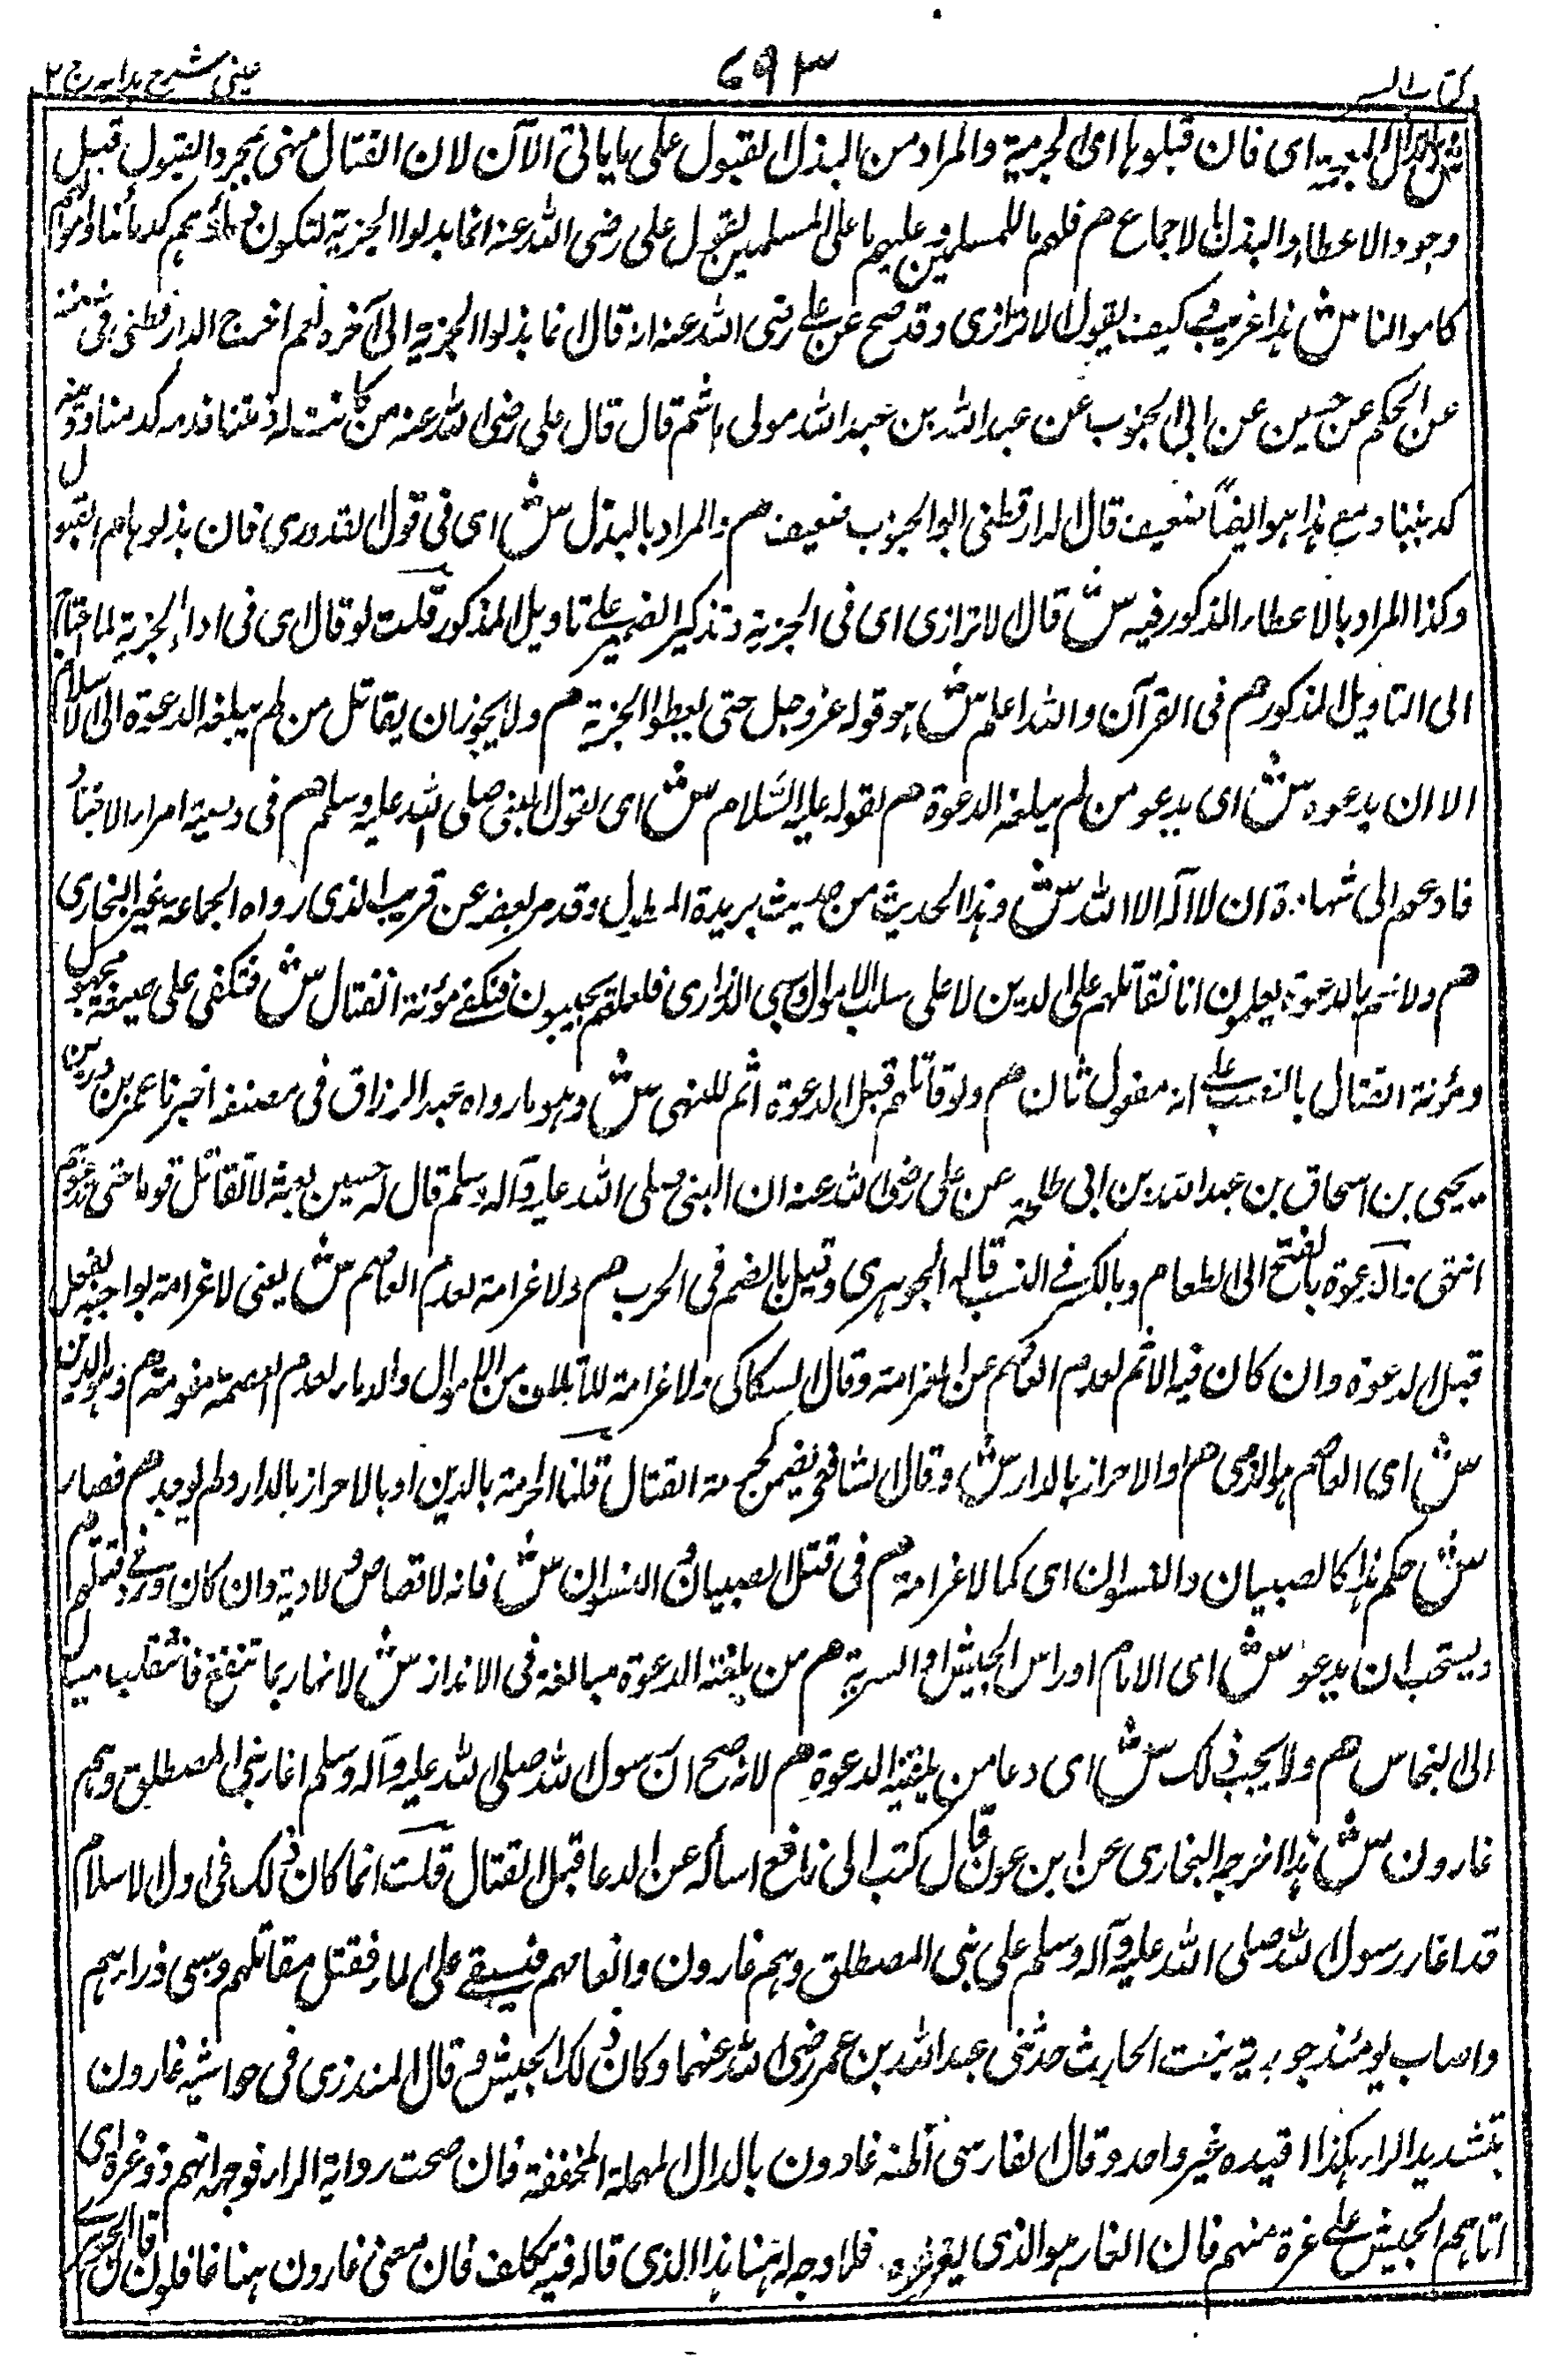 كتاب السير ٦٩٣ عيني شرح هداية ج ٢
اى فان قبلوها اى الجزية والمراد من البذل القبول على ما ياتى الآن لان القتال منهى بمجرد القبول قبل
وجود الاعطاء والبذل بالاجماع م فلهم ما للمسلمين وعليهم ما على المسلمين لقول على رضى الله عنه انما بذلوا الجزية لتكون دماؤهم كدمائنا واموالهم
كاموالنا ش هذا غريب كيف يقول الاترازى وقد صح عن على رضى الله عنه انه قال انما بذلوا الجزية الى آخره نعم اخرج الدارقطنى فى سننه
عن الحكم عن حسين عن ابى الجنوب عن عبد الله بن عبد الله مولى هاشم قال قال على رضى الله عنه من كانت له ذمتنا فدمه كدمنا وديته
كديتنا ومع هذا هو ايضاً ضعيف قال الدارقطنى ابو الجنوب ضعيف م والمراد بالبذل ش اى فى قول القدورى فان بذلوها م القبول
وكذا المراد بالاعطاء المذكور فيه ش قال الاترازى اى فى الجزية وتذكير الضمير على تاويل المذكور قلت لو قال اى فى اداء الجزية لما احتاج
الى التاويل المذكور م فى القرآن والله اعلم ش هو قوله عز وجل حتى يعطوا الجزية م ولا يجوز ان يقاتل من لم يبلغه الدعوة الى الاسلام
الا ان يدعوه ش اى يدعو من لم يبلغه الدعوة م لقوله عليه السلام ش اى لقول النبى صلى الله عليه وسلم م فى وصية امراء الاجناد
فادعهم الى شهادة ان لا اله الا الله ش وهذا الحديث من حديث بريدة الطويل وقد مر بعضه عن قريب الذى رواه الجماعة غير البخارى
م ولانهم بالدعوة يعلمون انا نقاتلهم على الدين لا على سلب الاموال وسبى الذرارى فلعلهم يجيبون فنكفى مؤنة القتال ش فنكفى على صيغة مجهول
ومؤنة القتال بالنصب على انه مفعول ثان م ولو قاتلهم قبل الدعوة اثم للنهى ش وهو ما رواه عبد الرزاق فى مصنفه اخبرنا عمر بن ذر عن
يحيى بن اسحاق بن عبد الله بن ابى طلحة عن على رضى الله عنه ان النبى صلى الله عليه وآله وسلم قال له حين بعثه لا تقاتل قوما حتى تدعوهم
انتهى والدعوة بالفتح الى الطعام وبالكسر فى النسب قاله الجوهرى وقيل بالضم فى الحرب م ولا غرامة لعدم العاصم ش يعنى لا غرامة بواجبة بفعل
قبل الدعوة وان كان فيه الاثم لعدم العاصم عن الغرامة وقال السكاكى ولا غرامة للاتلاف من الاموال والدماء لعدم العصمة مقومة م وهو الدين
ش اى العاصم هو الدين م او الاحراز بالدار ش وقال الشافعى يضمن لحرمة القتال قلنا الحرمة بالدين او بالاحراز بالدار ولم يوجد م فصار
ش حكم هذا كالصبيان والنسوان اى كما لا غرامة م فى قتل الصبيان والنسوان ش فانه لا قصاص ولا دية وان كان ورد نهى فى قتلهم م
ويستحب ان يدعو ش اى الامام او راس الجيش او السرية م من بلغته الدعوة مبالغة فى الانذار ش لانها ربما تنفع فانقلب ميلا
الى النجاس م ولا يجب ذلك ش اى دعا من بلغته الدعوة م لانه صح ان رسول الله صلى الله عليه وآله وسلم اغار بنى المصطلق وهم
غارون ش هذا اخرجه البخارى عن ابن عون قال كتب الى نافع اسأله عن الدعا قبل القتال قلت انما كان ذلك فى اول الاسلام
قد اغار رسول الله صلى الله عليه وآله وسلم على بنى المصطلق وهم غارون وانعامهم فيسقى على الماء فقتل مقاتلهم وسبى ذراريهم
واصاب يومئذ جويرية بنت الحارث حدثنى عبد الله بن عمر رضى الله عنهما وكان ذلك الجيش وقال المنذرى فى حواشيه غارون
بتشديد الراء هكذا قيده غير واحد وقال الفارسى اظنه غادون بالدال المهملة المخففة فان صحت رواية الراء فوجه انهم ذو غرة اى
اتاهم الجيش على غرة منهم فان الغار هو الذى يغر غيره فلا وجه له هنا هذا الذى قاله فيه تكلف فان معنى غارون هنا غافلون قال الجوهرى